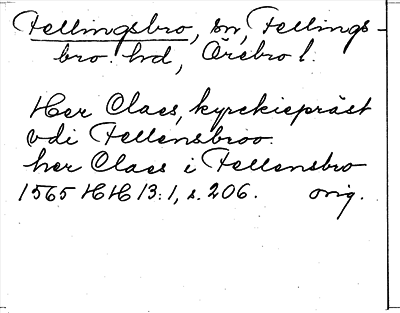 Fellingsbro, sn, Fellings-
bro hd, Örebro l.
Her Claes, kyrckiepräst
vdi Fellensbroo.
her Claes i Fellensbro
1565 HH 13:1, s. 206. orig.